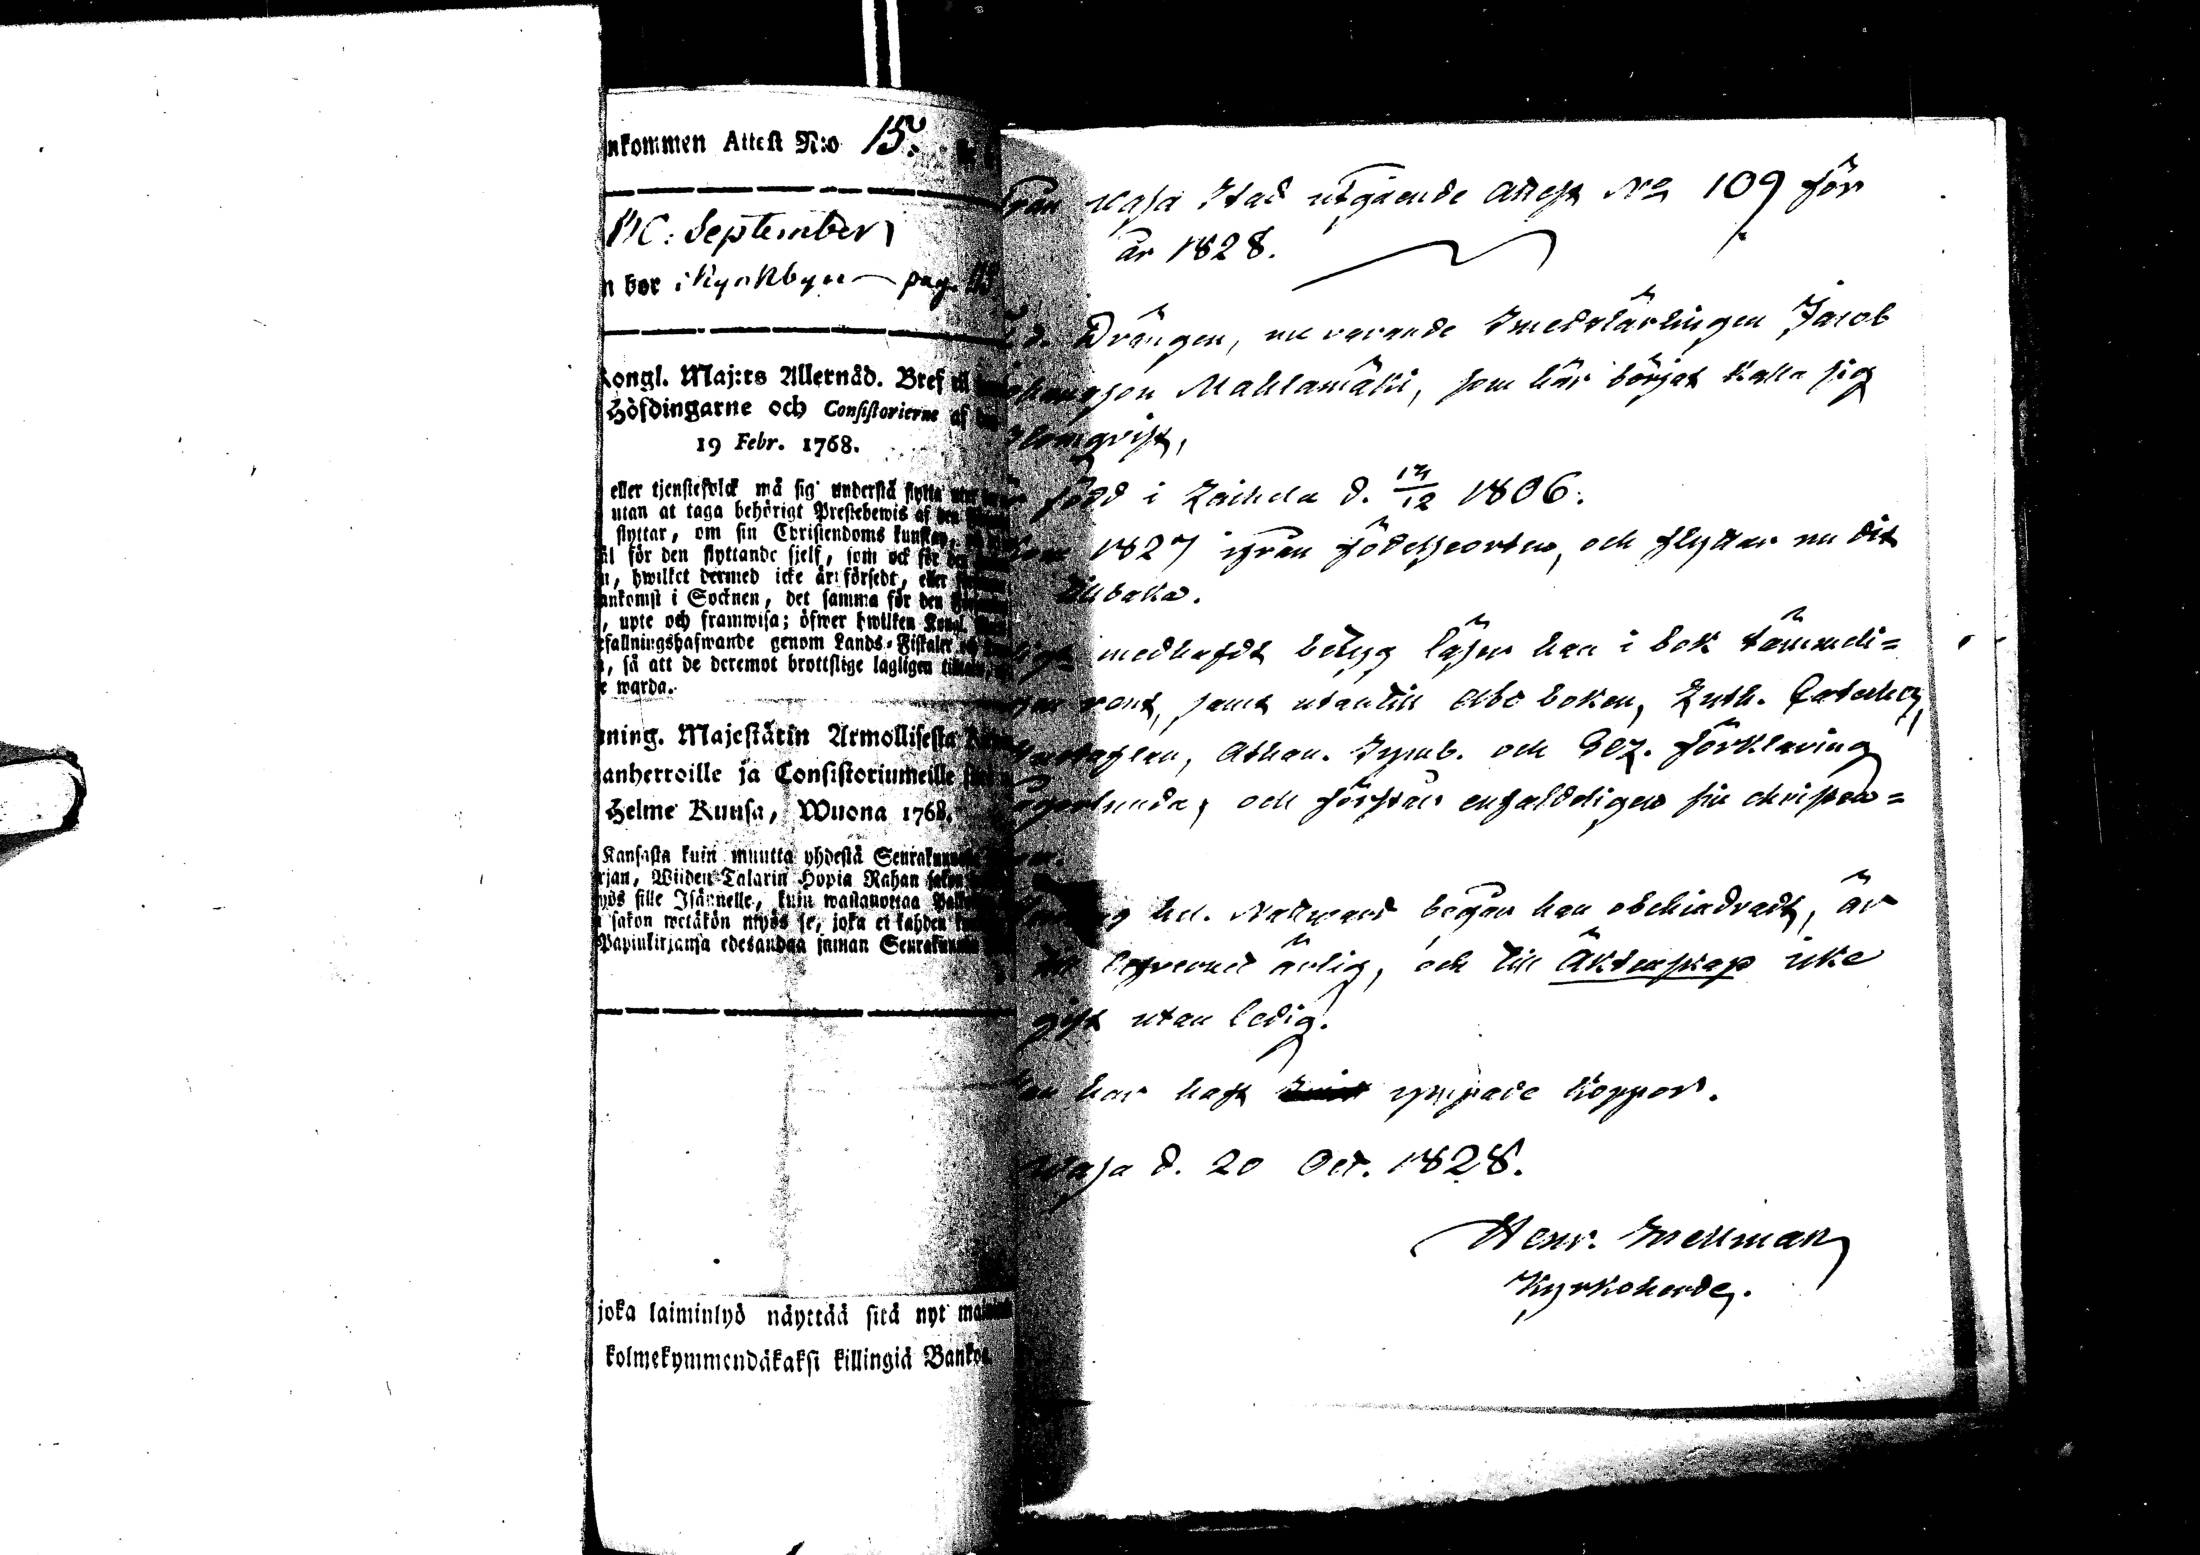 nkommen Attest N:o 15.
September
n bor i Kyrkbyn pag.
Kongl. Maj:ts Allernåd. Bref til
Höfdingarne och Consistorierne af
19 Febr. 1768.
eller tjenstefolck må sig understå flytta
utan at taga behörigt Prestebewis af den
flyttar, om sin Christendoms kunskap,
för den flyttande sjelf, som ock för den
hwilket dermed icke är försedt, eller
ankomst i Socknen, det samma för den
upte och framwisa; öfwer hwilken Kongl.
efallningshafwande genom Lands-Fiskaler
så att de deremot brottslige lagligen
e warda.
ning. Majestätin Armollisesta
anherroille ja Consistoriumeille
Helme Kuusa, Wuona 1768.
Kansasta kuin muutta yhdestä Seurakunnasta
rjan, Wiiden Talarin Hopia Rahan sakon
yös sille Isännelle, kuin wastanottaa
sakon wetäkön myös se, joka ei kahden
Papinkirjansa edesandaa sinnan Seurakunnan
joka laiminlyö näyttää sitä nyt
kolmekymmendäkaksi killingiä Bankos
Från Wasa Stad utgående attest No 109 för
år 1828.
F. d. Drängen, nu varande Smedslärlingen Jacob
Mahlamäki, som här börjat kalla sig
född i Laihela d. /12 1806.
1827 ifrån födelseorten, och flyttar nu dit
tillbaka.
medhafdt betyg läser han i bok tämmeli=
rent, samt utantill Abc boken, Luth. Cateches,
Hustaflan, Athan. Symb. och Sez. förklaring
och förstår enfaldeligen sin christen=
dom.
hel. Nattvard begår han obehindradt, är
till lefvernet ärlig, och till Äktenskap icke
gift utan ledig.
han har haft ympade koppor.
Wasa d. 20 Oct. 1828.
Henr.
Kyrkoherde.